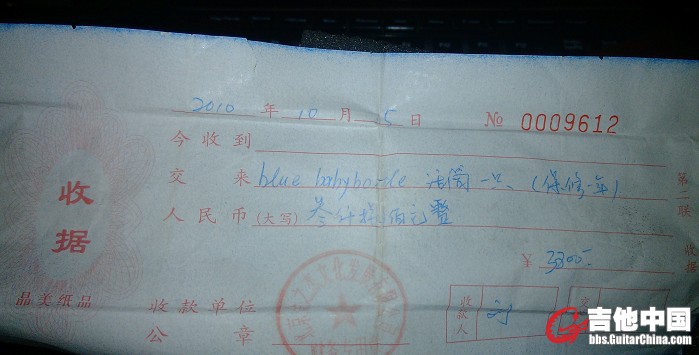 2010 年 10 月 5 日 № 0009612
今收到
交来 blue babybottle 话筒一只 (保修一年)
人民币 (大写) 叁仟捌佰元整
¥ 3800
收据
第二联 收据
晶美纸品
收款单位
公章
收款人
交
吉他中国
bbs.GuitarChina.com